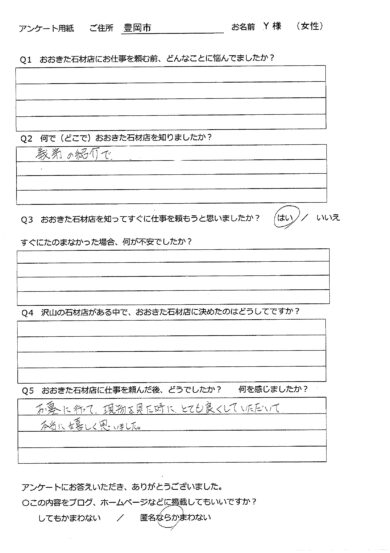 アンケート用紙 ご住所 豊岡市 お名前 Y 様 (女性)
Q1 おおきた石材店にお仕事を頼む前、どんなことに悩んでましたか?
Q2 何で(どこで)おおきた石材店を知りましたか?
親弟の紹介で
Q3 おおきた石材店を知ってすぐに仕事を頼もうと思いましたか? はい / いいえ
すぐにたのまなかった場合、何が不安でしたか?
Q4 沢山の石材店がある中で、おおきた石材店に決めたのはどうしてですか?
Q5 おおきた石材店に仕事を頼んだ後、どうでしたか? 何を感じましたか?
お墓に行って、現物を見た時に とても良くしていただいて
本当に嬉しく思いました。
アンケートにお答えいただき、ありがとうございました。
○この内容をブログ、ホームページなどに掲載してもいいですか?
してもかまわない / 匿名ならかまわない